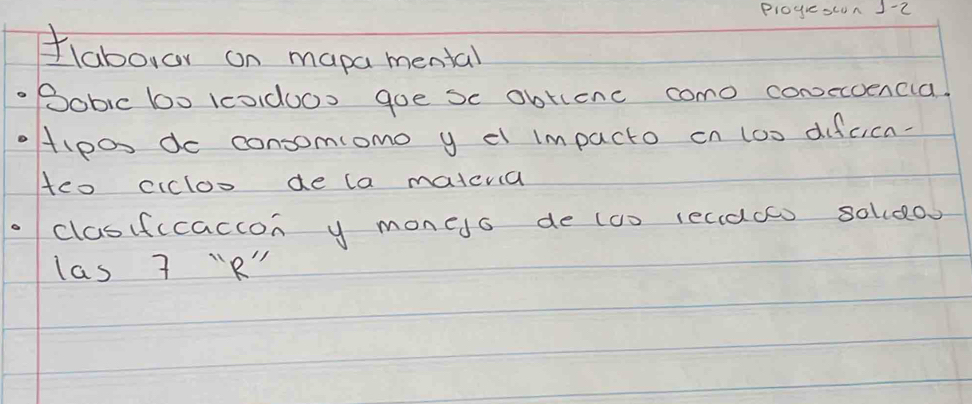 Progresion 1-2
Elaborar un mapa mental
• Sobre los residuos que se obtiene como consecuencia.
• tipos de consomismo y el impacto en los diferen-
tes ciclos de la materia
• clasificaccón y manejo de los residuos solidos
las 7 "R"